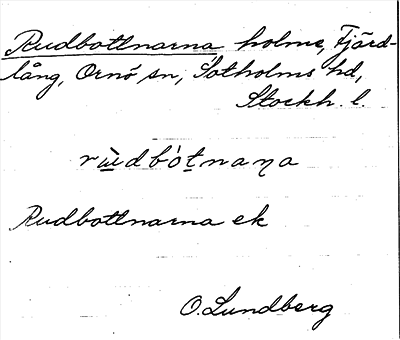 Rudbottnarna holme, Fjärd-
lång, Ornö sn, Sotholms hd,
Stockh. l.
rùdbót̲naɳa
Rudbottnarna ek
O. Lundberg